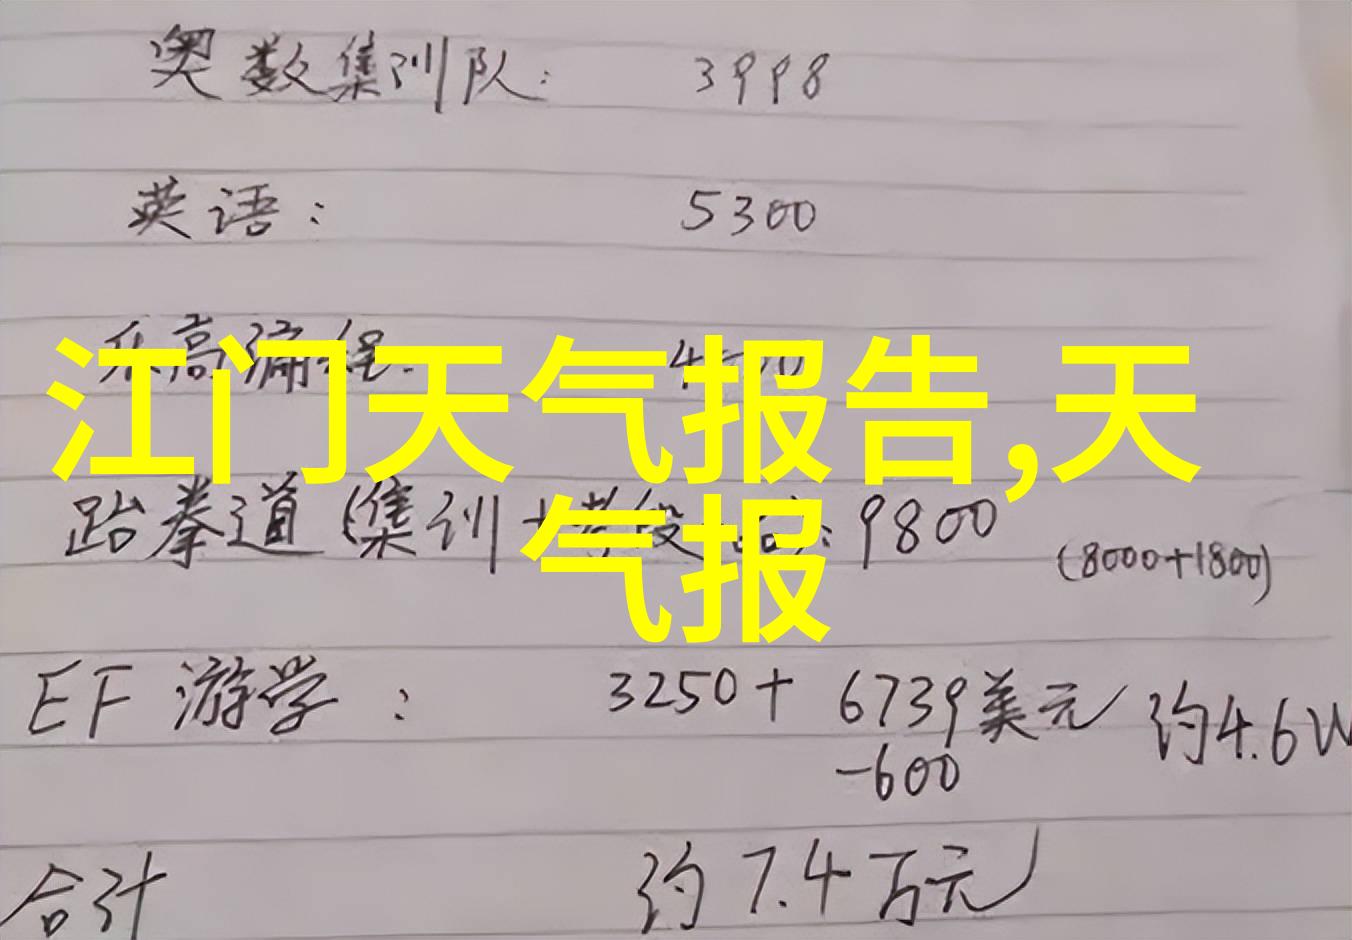 奥数集训队: 3998
英语: 5300
乐高编程:
江门天气报告,天
气报
跆拳道(集训+考段 9800 (8000+1800)
EF 游学: 3250+ 6739美元 约4.6W
-600
合计 约7.4万元